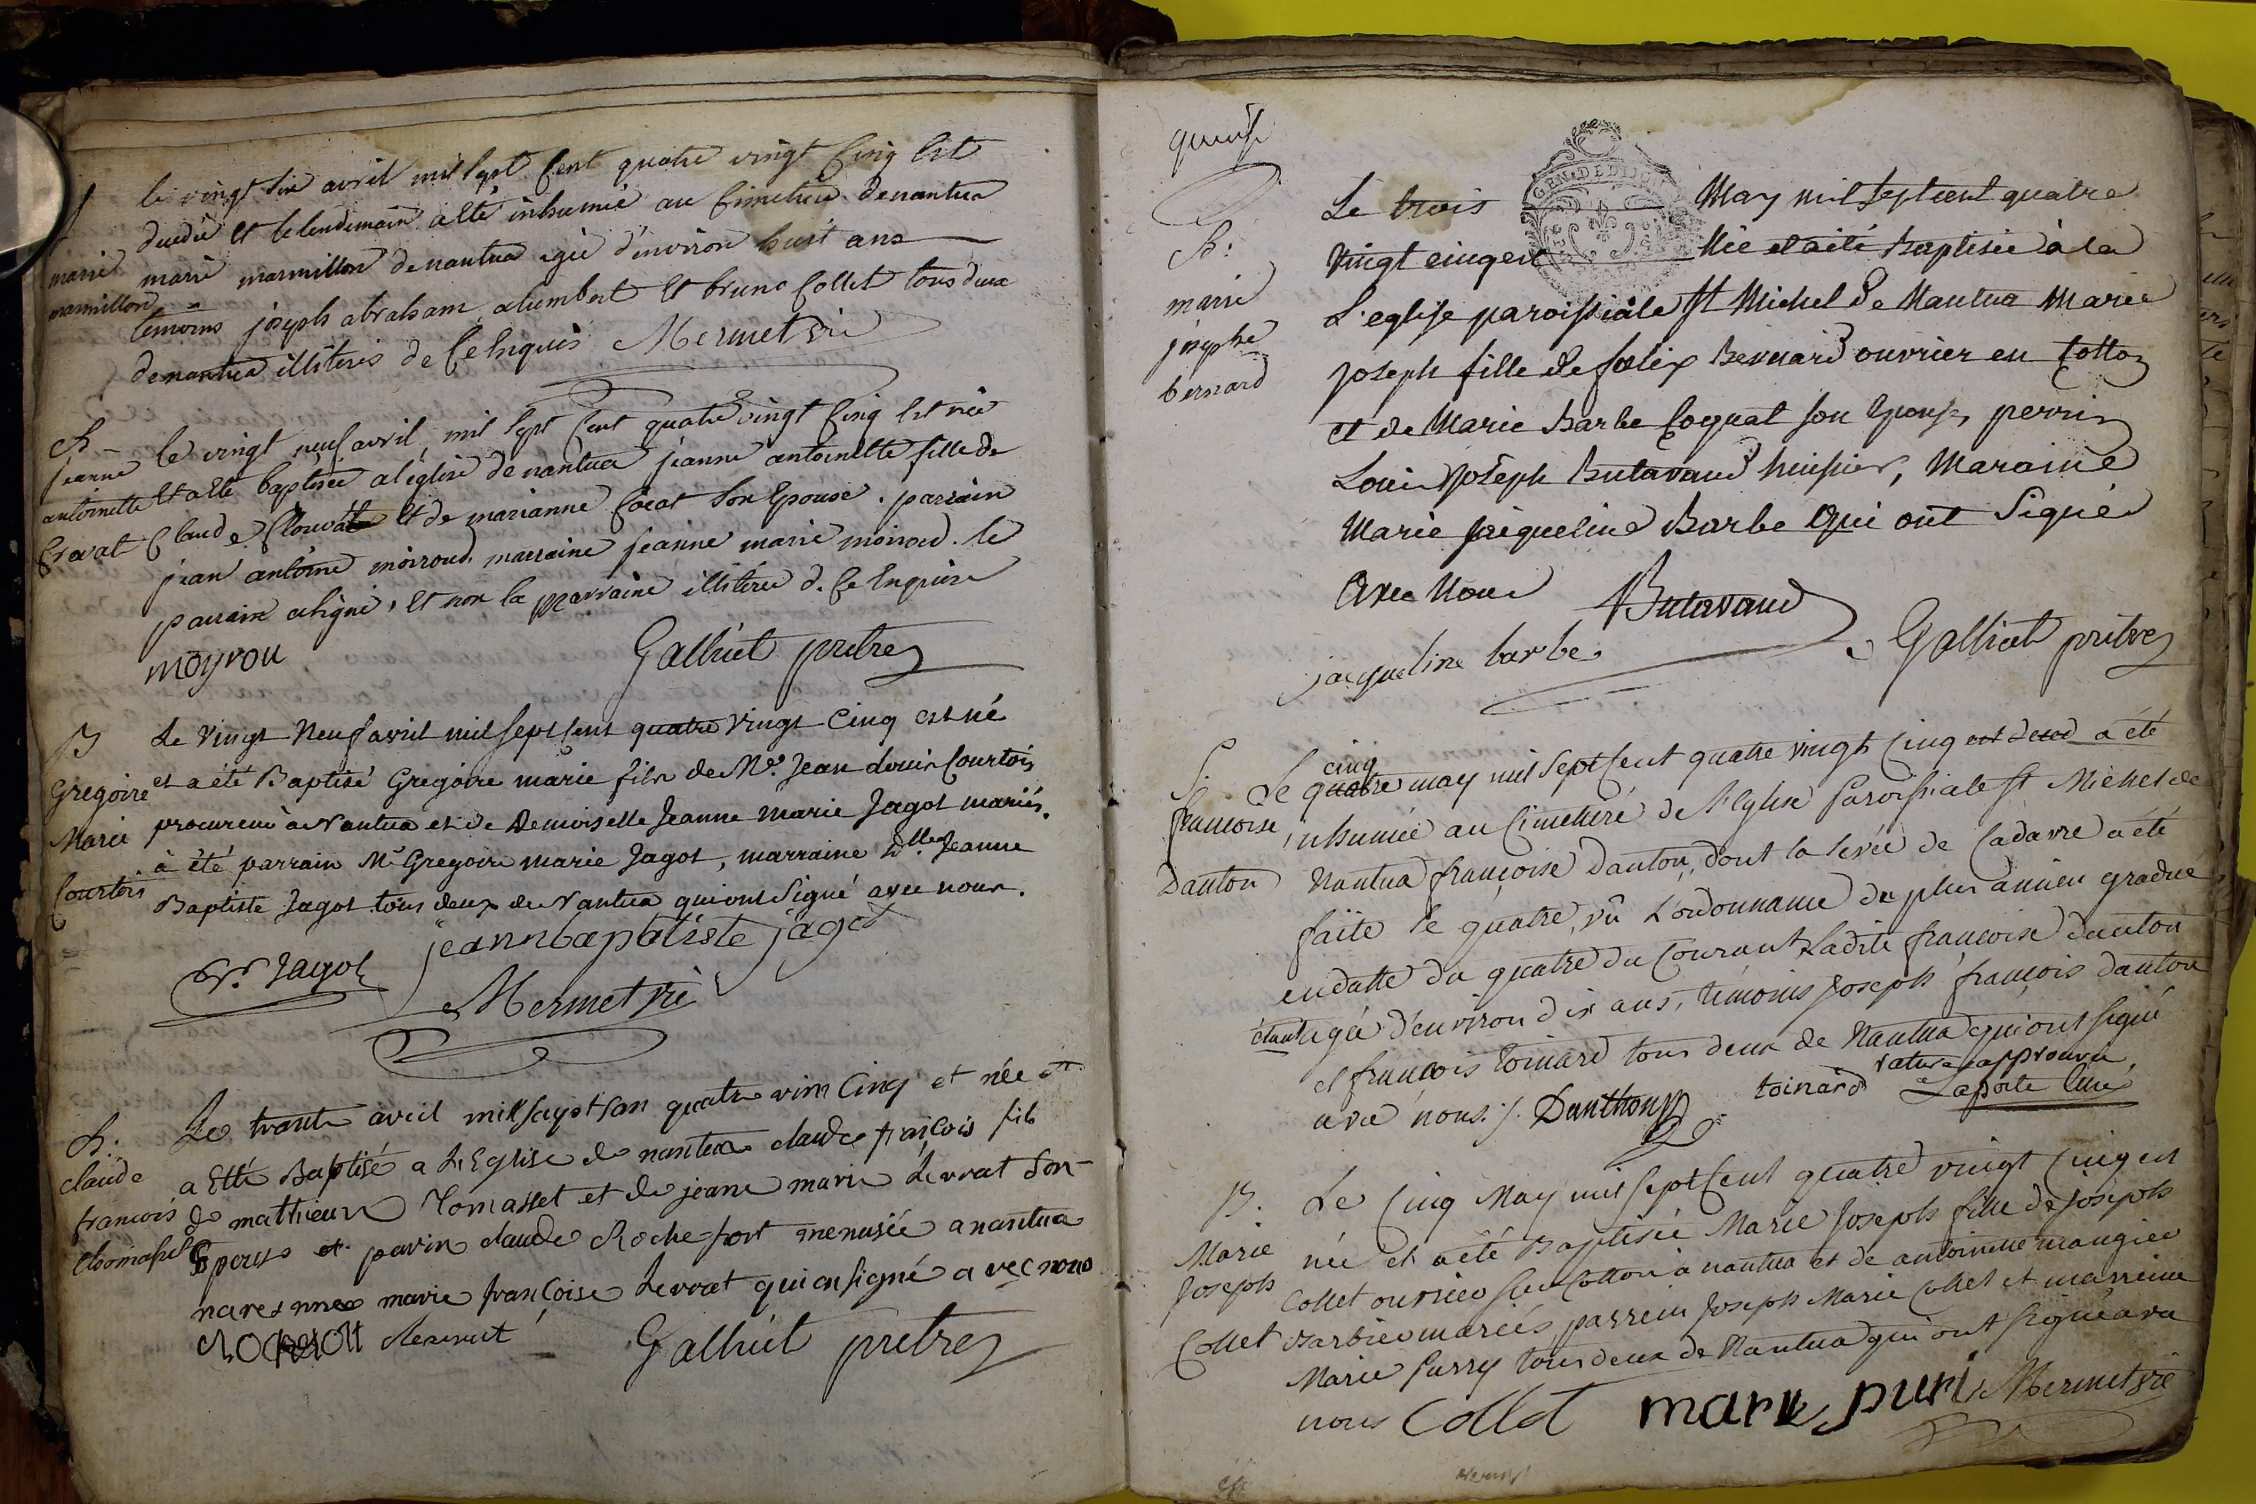 S
marie
marmillon
le vingt six avril mil sept cent quatre vingt cinq est
decedée et le lendemain a eté inhumée au cimetiere de nantua
marie marmillon de nantua agée d'environ huit ans
temoins joseph abraham alumbert et bruno Collet tous deux
de nantua illiteres de ce enquis Mermet vic
B
jeanne
antoinette
Cravat
le vingt neuf avril mil sept cent quatre vingt cinq est née
et a eté baptisée a l'eglise de nantua jeanne antoinette fille de
Claude et de marianne cocat son epouse. parrain
jean antoine moiroud, marraine jeanne marie moiroud. le
parrain a signé, et non la marraine illiterée de ce enquise
moyrou
Galliet pretre
B
Gregoire
Marie
Courtois
Le vingt Neuf avril mil sept cent quatre vingt cinq est né
et a été Baptisé Gregoire marie fils de Me. Jean Louis Courtois
procureur à Nantua et de Demoiselle Jeanne Marie Jagot mariés.
à été parrain Mr Gregoire marie Jagot, marraine Dlle Jeanne
Baptiste Jagot tous deux de Nantua qui ont signé avec nous.
jeanne baptiste jagot
Gr. Jagot
Mermet vic
B.
claude
francois
thomasset
Le trante avril mil sayt san quatre vint cinq et née et
a Etté Baptisé a L'Eglise de nantua claude françois fils
de mathieur Tomasset et de jeane marie Levrat son
Epouse et parin claude Rochefort menusiée a nantua
marie françoise Levrat qui on signé avec nous
Galliet pretre
B.
marie
josephe
bernard
Le trois May mil sept cent quatre
GEN. DE DIJON
vingt cinq est Née et a été Baptisée à la
L'eglise paroissiale St Michel De Nantua Marie
Joseph fille de felix Bernard ouvrier en Cotton
et de Marie Barbe Coquat son Epouse, perrin
Louis Joseph Butavand huissier, Maraine
Marie Jacqueline Barbe Qui ont Signés
Avec Nous
Butavand
jacqueline barbe
Galliet prêtre
S.
francoise
Danton
Le quatre cinq may mil sept cent quatre vingt cinq est deced a été
inhumée au Cimetiere de l'Eglise Paroissiale St Michel de
Nantua françoise Danton, dont la levée de Cadavre a été
faite le quatre, vû L'ordonnance du plus ancien gradué
en datte du quatre du Courant Ladite françoise Danton
étant agée d'environ dix ans, témoins Joseph françois Danton
et francois toinard tous deux de Nantua qui ont signé
avec nous ./. Danthon toinard rature approuvée
Laporte Curé
B.
Marie
Joseph
Collet
Le Cinq May mil sept Cent quatre vingt Cinq est
née et a été Baptisée Marie Joseph fille de Joseph
Collet ouvrier sur Cotton à nantua et de antoinette maugier
Barbier mariés, parrein Joseph Marie Collet et marreine
Marie Purry tous deux de Nantua qui ont signé avec
nous Collet marie puri Mermet vic